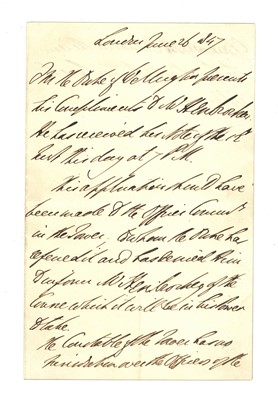 London June 26 1847
F M the Duke of Wellington presents
his Compliments to Mr
He has received his Note of the
Inst this day at 7 P.M.
This application should have
been made to the Officer Commg
in the Tower. To whom the Duke has
referred it and has desired him
to inform Mr of the
Course which it will be in his Power
to take
The Constable of the Tower has no
over the Offices of the